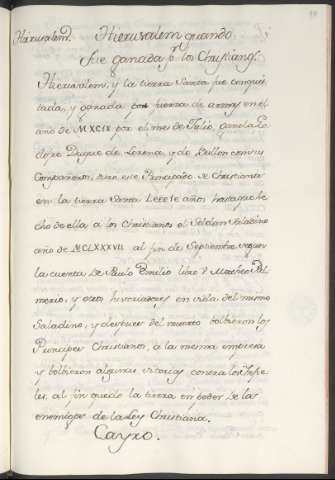 Hierusalem. Hierusalem quando
fue ganada pr. los Christianos.
Hierusalem, y la tierra Santa fue conquis
tada, y ganada con fuerza de armas en el
año de MXCIX por el mes de Julio, ganola Go
dofre Duque de Lorena, y de Bullon con sus
Compañeros, duro este Principado de Christianos
en la tierra Santa años hasta que he
cho de ella a los Christianos el Soldan Saladino
año de MCLXXXVII al fin de Septiembre segun
la cuenta de Paulo Emilio libro V Matheo Pal
merio, y otros historiadores en vida del mismo
Saladino, y despues del muerto bolbieron los
Principes Christianos, a la mesma empresa
y bolbieron algunas vitorias contra los Infie
les, al fin quedo la tierra en poder de las
enemigos de la Ley Christiana.
Cayro.